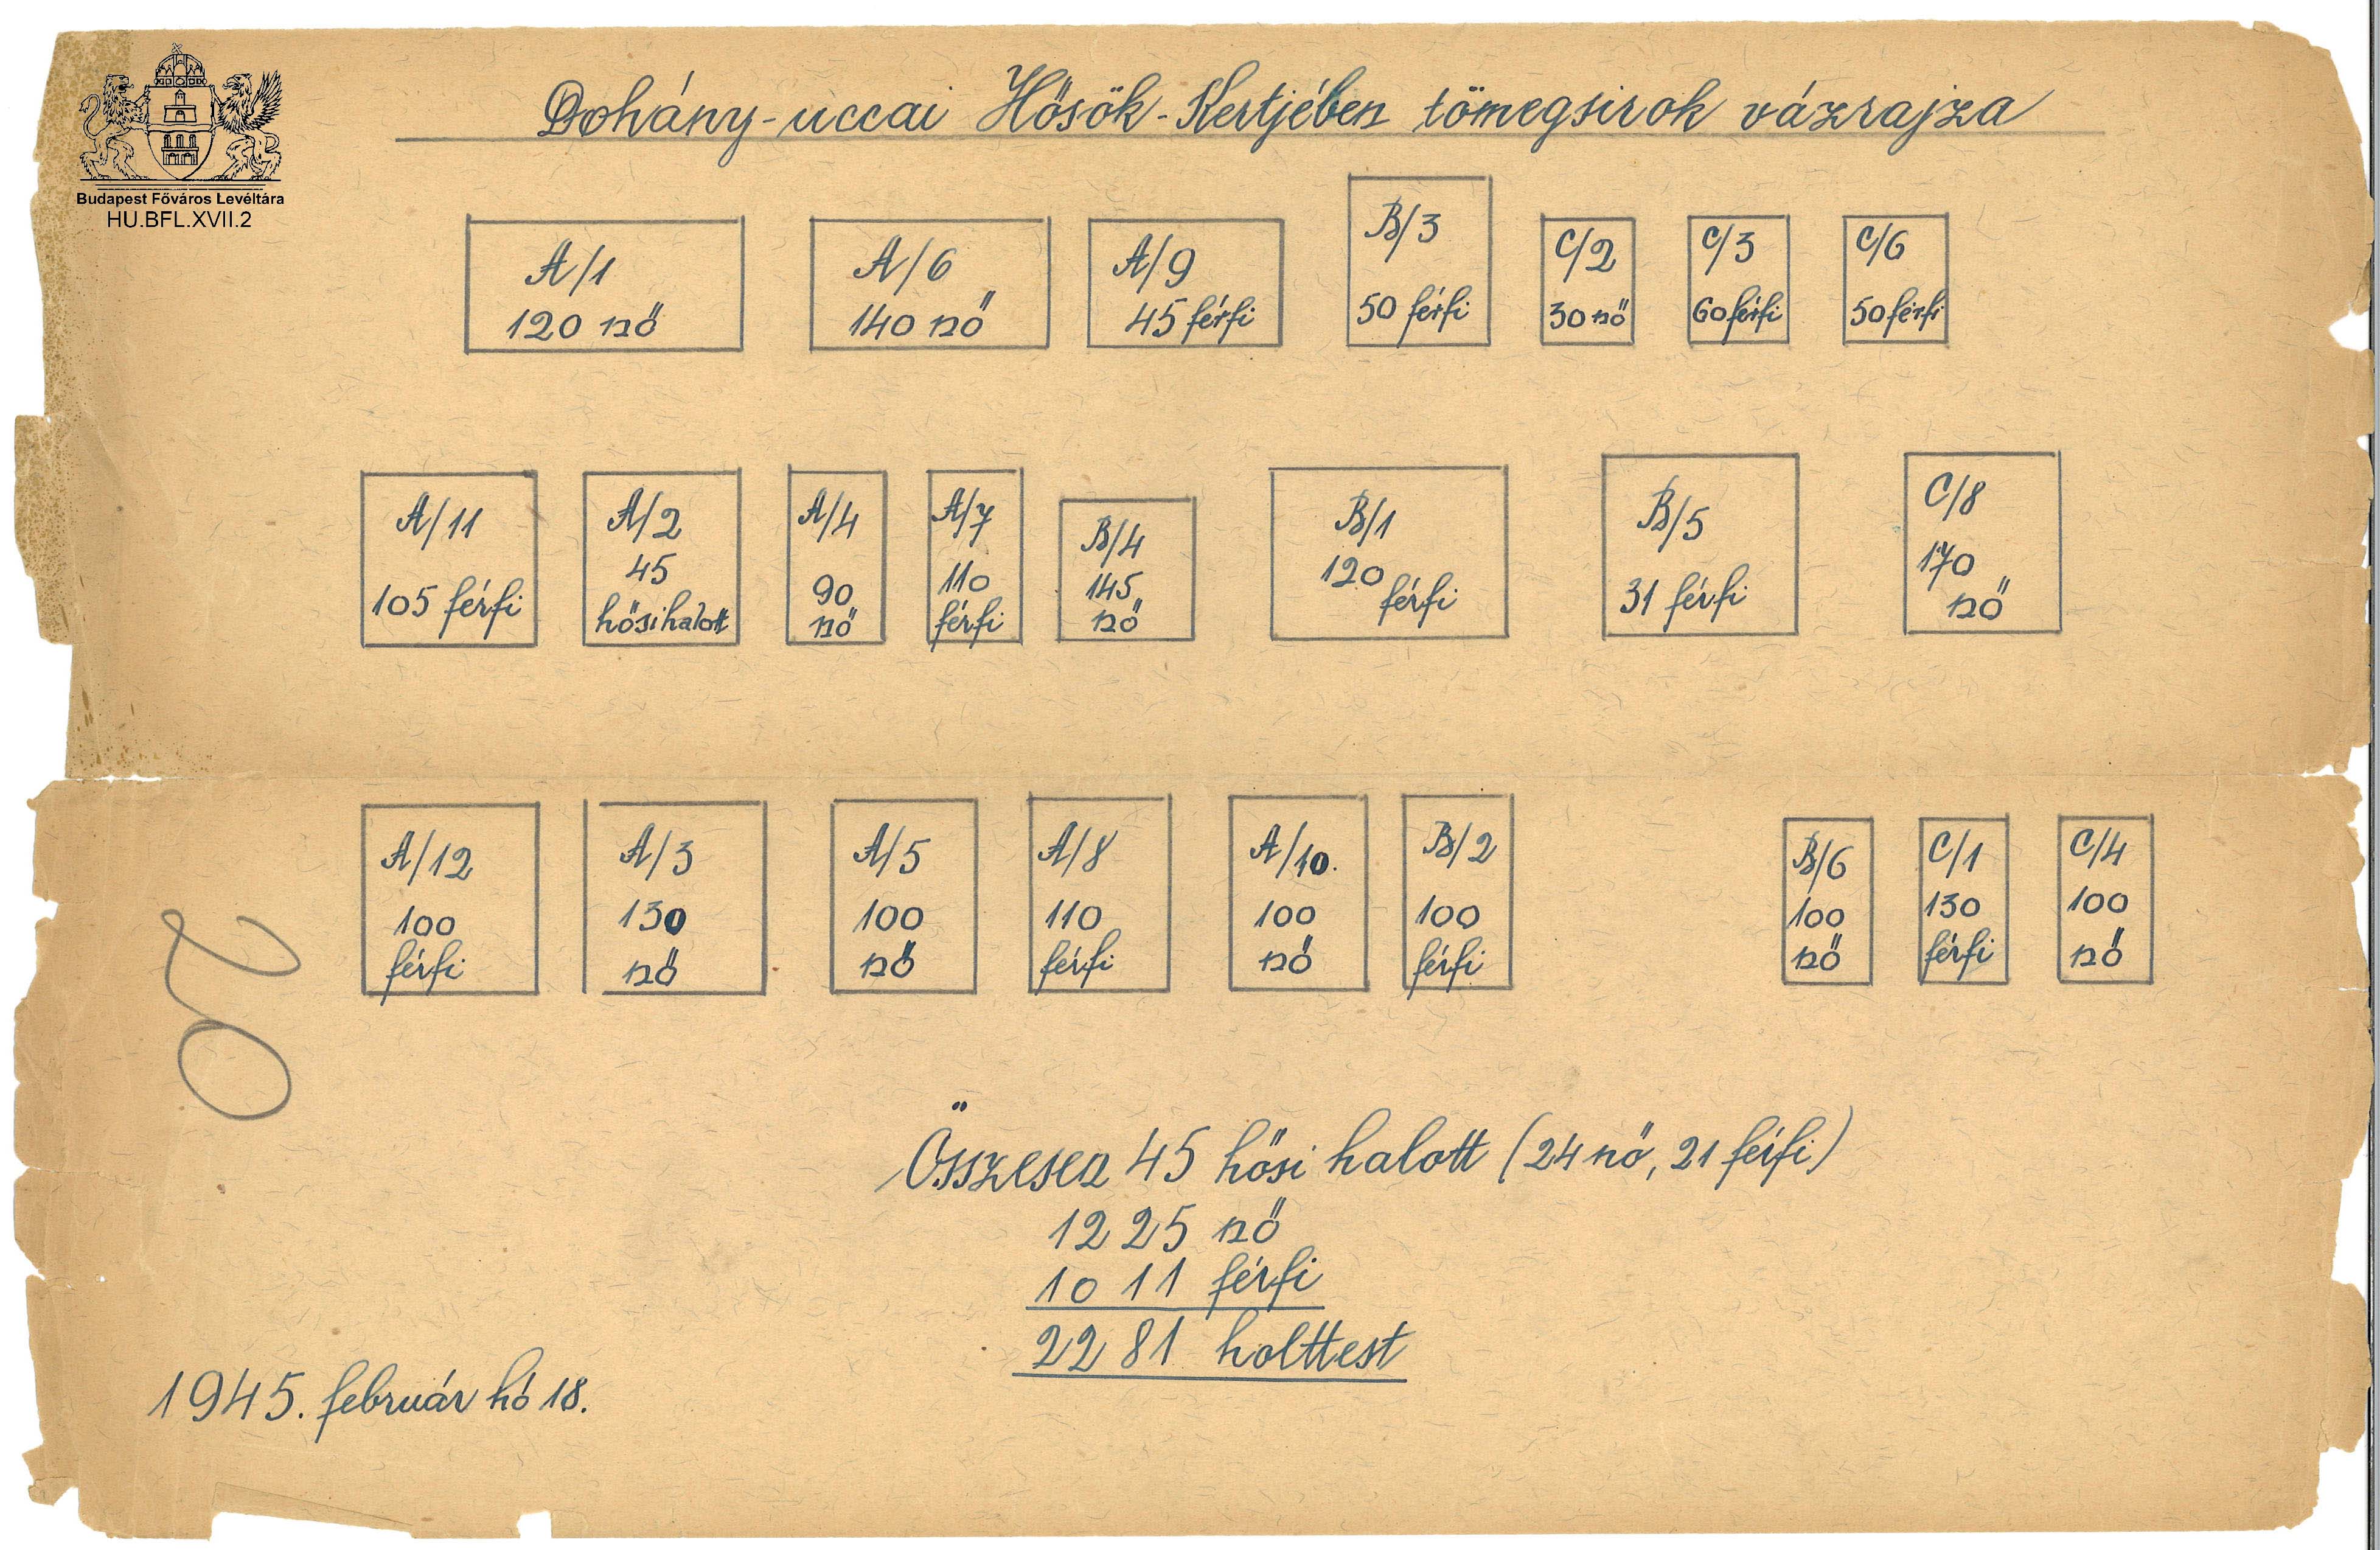 Dohány-uccai Hősök-Kertjében tömegsirok vázrajza
Budapest Főváros Levéltára
HU.BFL.XVII.2
A/1
120 nő
A/6
140 nő
A/9
45 férfi
B/3
50 férfi
C/2
30 nő
C/3
60 férfi
C/6
50 férfi
A/11
105 férfi
A/2
45
hősi halott
A/4
90
nő
A/7
110
férfi
B/4
145
nő
B/1
120
férfi
B/5
31 férfi
C/8
170
nő
A/12
100
férfi
A/3
130
nő
A/5
100
nő
A/8
110
férfi
A/10.
100
nő
B/2
100
férfi
B/6
100
nő
C/1
130
férfi
C/4
100
nő
Összesen 45 hősi halott (24 nő, 21 férfi)
1225 nő
1011 férfi
2281 holttest
1945. február hó 18.